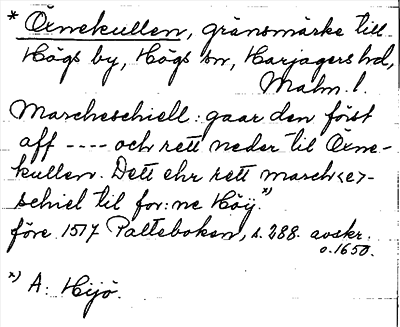 * Örnekullen, gränsmärke till
Högs by, Högs sn, Harjagers hd,
Malm. l.
Marcheschiell: gaar den först
aff ---- och rett neder til Örne-
kullen. Dett ehr rett march<e>-
schiel til for:ne Höÿ.*)
före 1517 Palteboken, s. 288. avskr.
o. 1650.
*) A: Hijö.